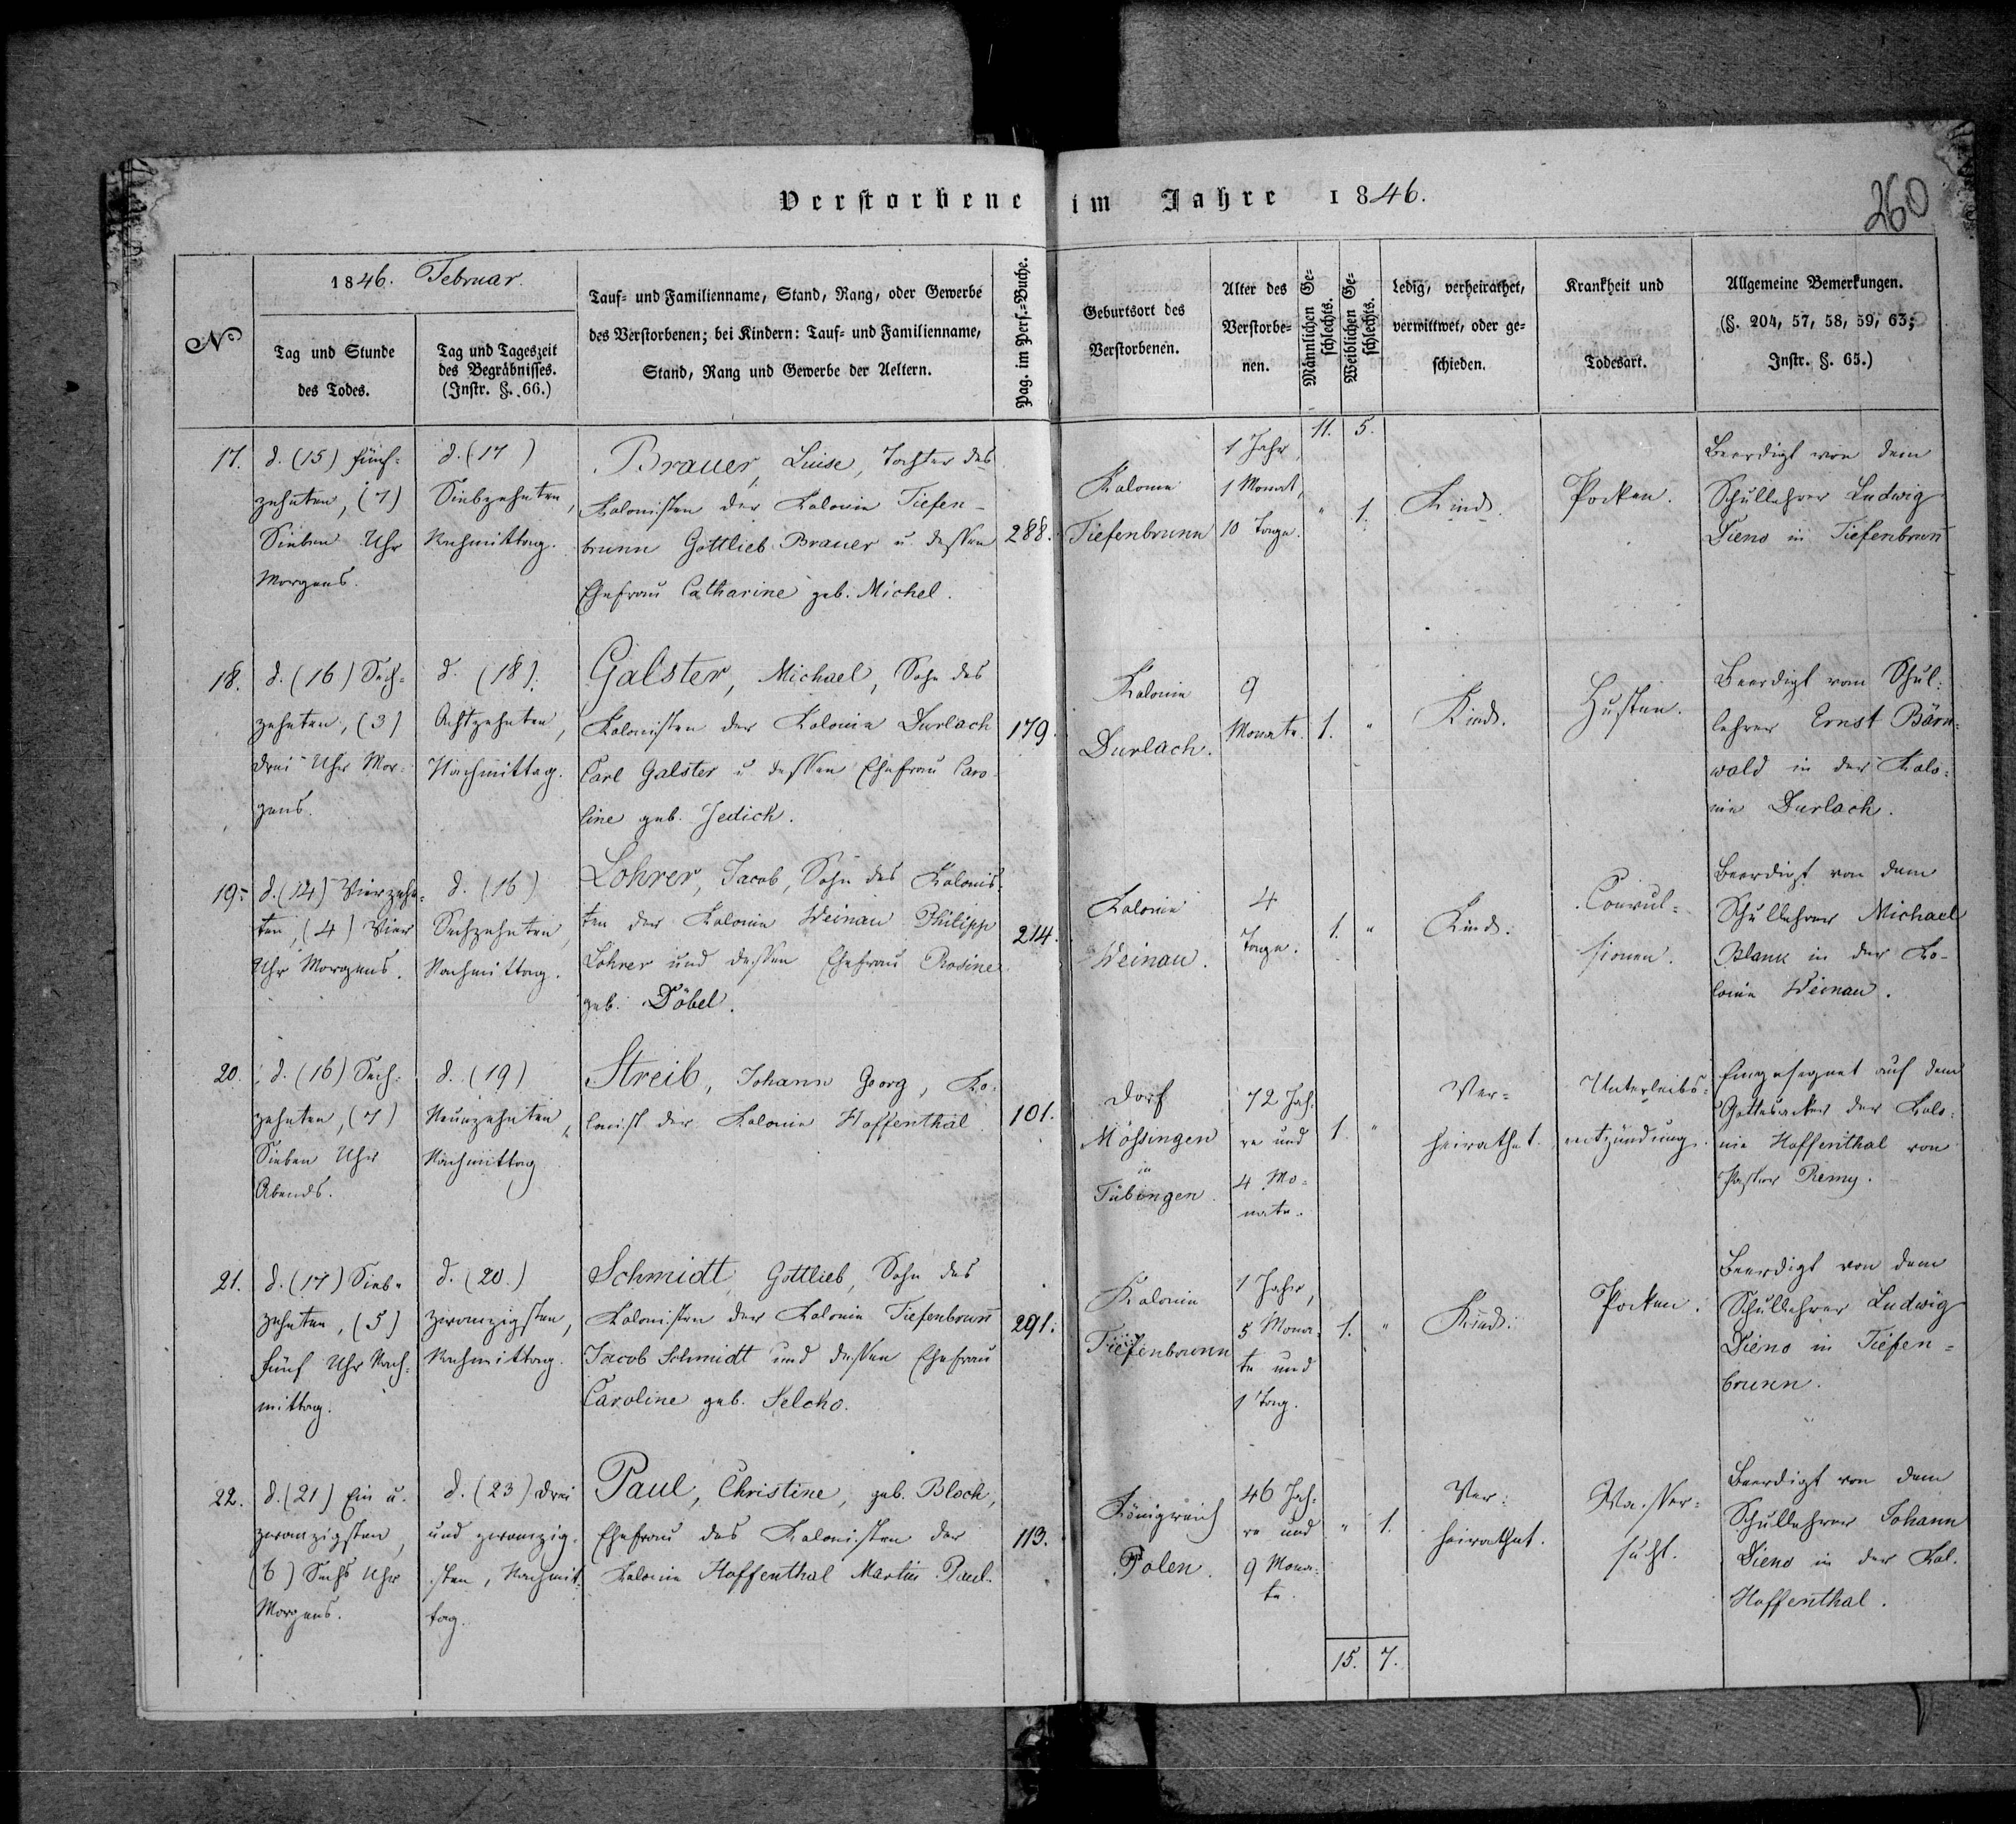 Verstorbene im Jahre 1846.
260
No
1846. Februar.
Tag und Stunde
des Todes.
Tag und Tageszeit
des Begräbnisses.
(Instr. §. 66.)
Tauf- und Familienname, Stand, Rang, oder Gewerbe
des Verstorbenen; bei Kindern: Tauf- und Familienname,
Stand, Rang und Gewerbe der Aeltern.
Pag. im Pers.-Buche.
Geburtsort des
Verstorbenen.
Alter des
Verstorbe-
nen.
Männlichen Ge-
schlechts.
Weiblichen Ge-
schlechts.
Ledig, verheirathet,
verwittwet, oder ge-
schieden.
Krankheit und
Todesart.
Allgemeine Bemerkungen.
(§. 204, 57, 58, 59, 63;
Instr. §. 65.)
11. 5.
17.
d. (15) fünf-
zehnten, (7)
Sieben Uhr
Morgens.
d. (17)
Siebzehnten,
Nachmittag.
Brauer, Luise, Tochter des
Kolonisten der Kolonie Tiefen-
brunn Gottlieb Brauer u. dessen
Ehefrau Catharine geb. Michel.
288.
Kolonie
Tiefenbrunn
1 Jahr,
1 Monat,
10 Tage.
" 1.
Kind.
Pocken.
Beerdigt von dem
Schullehrer Ludwig
Dieno in Tiefenbrunn
18.
d. (16) Sech-
zehnten, (3)
drei Uhr Mor-
gens.
d. (18).
Achtzehnten,
Nachmittag.
Galster, Michael, Sohn des
Kolonisten der Kolonie Durlach
Carl Galster u. dessen Ehefrau Caro-
line geb. Jedick.
179.
Kolonie
Durlach.
9
Monate.
1. "
Kind.
Husten.
Beerdigt vom Schul-
lehrer Ernst Bärn-
wald in der Kolo-
nie Durlach.
19.
d. (14) Vierzehn-
ten, (4) Vier
Uhr Morgens.
d. (16)
Sechzehnten,
Nachmittag.
Lohrer, Jacob, Sohn des Kolonis-
ten der Kolonie Weinau Philipp
Lohrer und dessen Ehefrau Rosine
geb. Döbel.
214.
Kolonie
Weinau.
4
Tage.
1. "
Kind.
Convul-
sionen.
Beerdigt von dem
Schullehrer Michael
Blank in der Ko-
lonie Weinau.
20.
d. (16) Sech-
zehnten, (7)
Sieben Uhr
Abends.
d. (19)
Neunzehnten,
Nachmittag
Streib, Johann Georg, Ko-
lonist der Kolonie Hoffenthal
101.
Dorf
Mössingen
in
Tübingen.
72 Jah-
re und
4 Mo-
nate.
1. "
Ver-
heirathet.
Unterleibs-
entzündung.
Eingesegnet auf dem
Gottesacker der Kolo-
nie Hoffenthal von
Pastor Remy.
21.
d. (17) Sieb-
zehnten, (5)
fünf Uhr Nach-
mittag.
d. (20.)
zwanzigsten,
Nachmittag.
Schmidt, Gottlieb, Sohn des
Kolonisten der Kolonie Tiefenbrunn
Jacob Schmidt und dessen Ehefrau
Caroline geb. Selcho.
291.
Kolonie
Tiefenbrunn
1 Jahr,
5 Mona-
te und
1 Tag.
1. "
Kind.
Pocken.
Beerdigt von dem
Schullehrer Ludwig
Dieno in Tiefen-
brunn.
22.
d. (21) Ein u.
zwanzigsten,
(6) Sechs Uhr
Morgens.
d. (23) drei
und zwanzig-
sten, Nachmit-
tag.
Paul, Christine, geb. Bloch,
Ehefrau des Kolonisten der
Kolonie Hoffenthal Martin Paul.
113.
Königreich
Polen.
46 Jah-
re und
9 Mona-
te.
" 1.
Ver-
heirathet.
Wasser-
sucht.
Beerdigt von dem
Schullehrer Johann
Dieno in der Kol.
Hoffenthal.
15. 7.